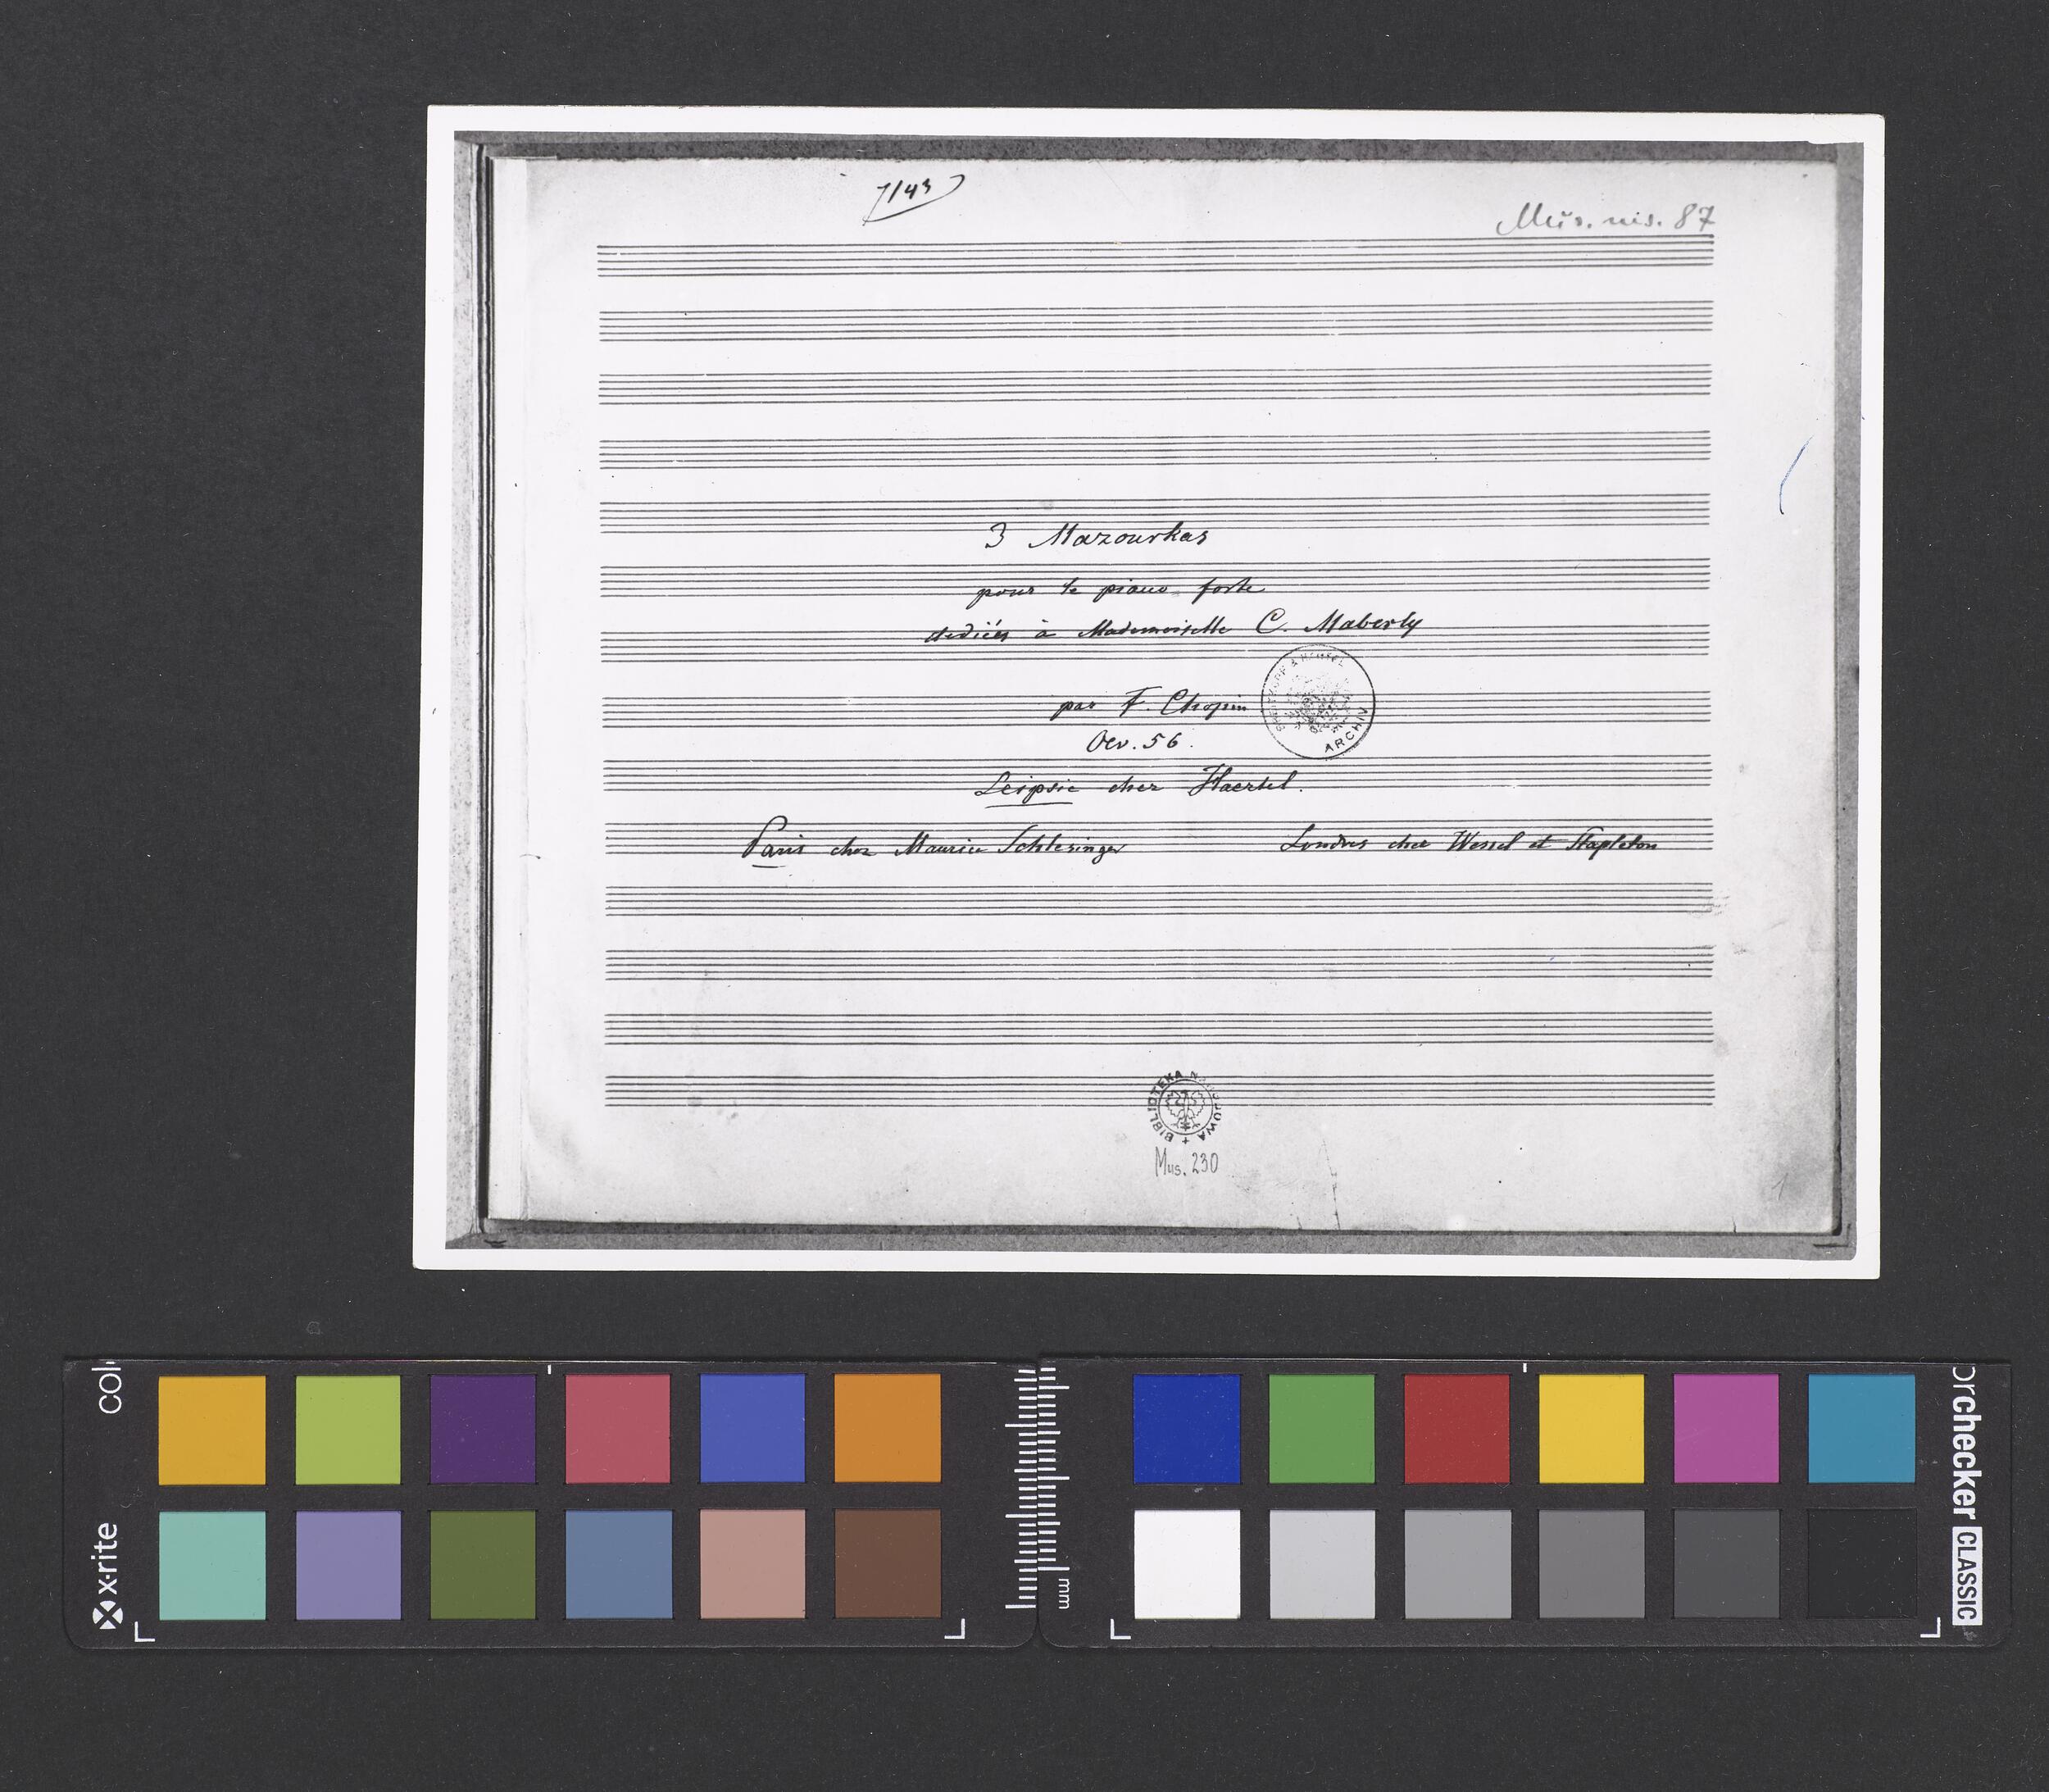 7/43
Mus. ms. 87
3 Mazourkas
pour le piano forte
dediées à Mademoiselle C. Maberly
par F. Chopin
Oev. 56.
BREITKOPF & HÄRTEL
ARCHIV
Leipsic chez Haertel.
Paris chez Maurice Schlesinger Londres chez Wessel et Stapleton
BIBLIOTEKA NARODOWA +
Mus. 230
1
x-rite
colorchecker CLASSIC
mm